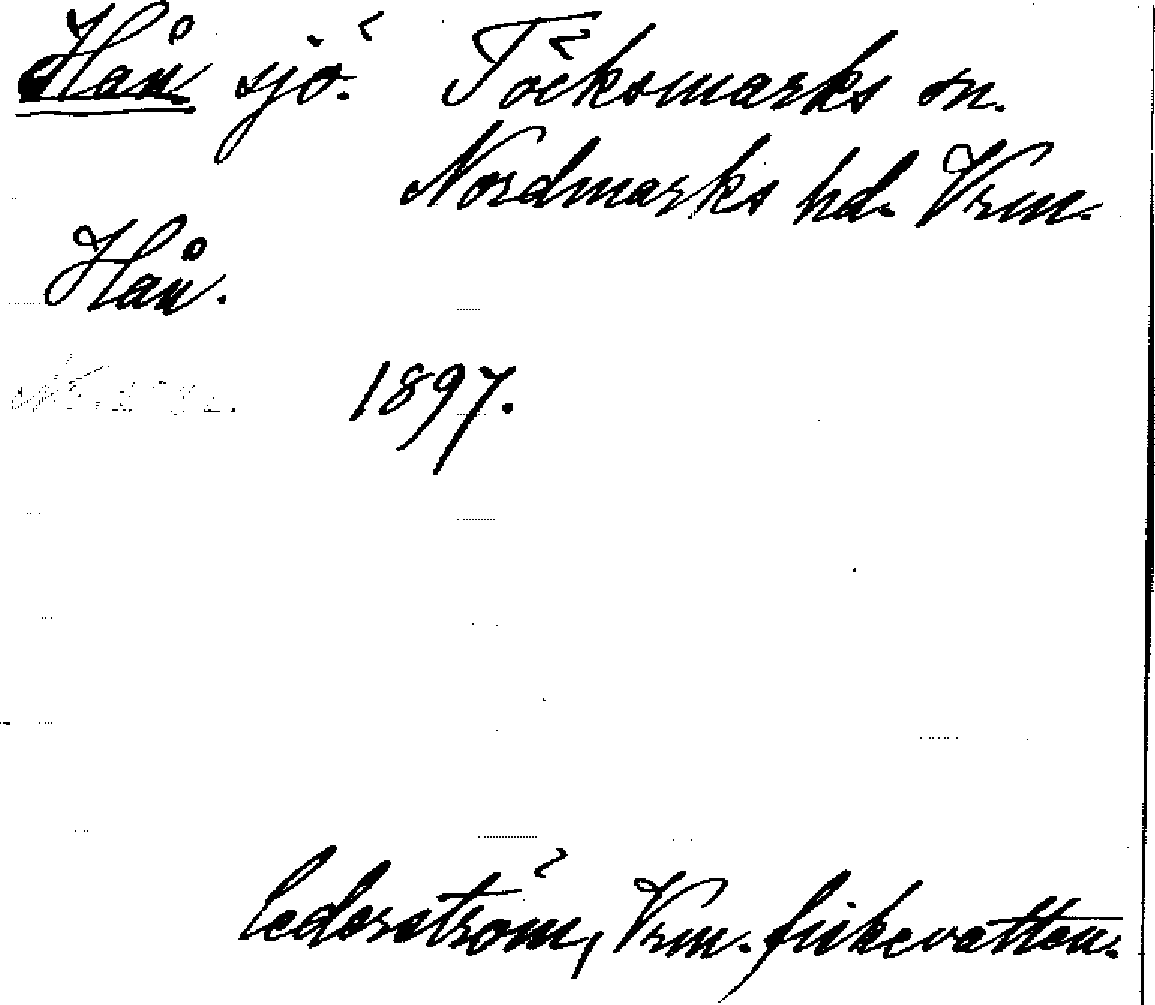 Hån sjö. Töcksmarks sn.
Nordmarks hd. Vrm.
Hån.
1897.
Cederström, Vrm. fiskevatten.